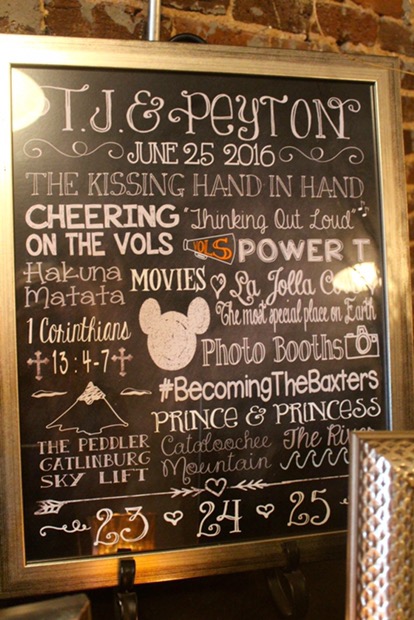 T.J. & PEYTON
JUNE 25 2016
THE KISSING HAND IN HAND
CHEERING ON THE VOLS
"Thinking Out Loud"
VOLS
POWER T
Hakuna Matata
MOVIES
La Jolla
The most special place on Earth
1 Corinthians
13:4-7
Photo Booths
#BecomingTheBaxters
PRINCE & PRINCESS
THE PEDDLER
GATLINBURG
SKY LIFT
Cataloochee Mountain
The River
23 24 25